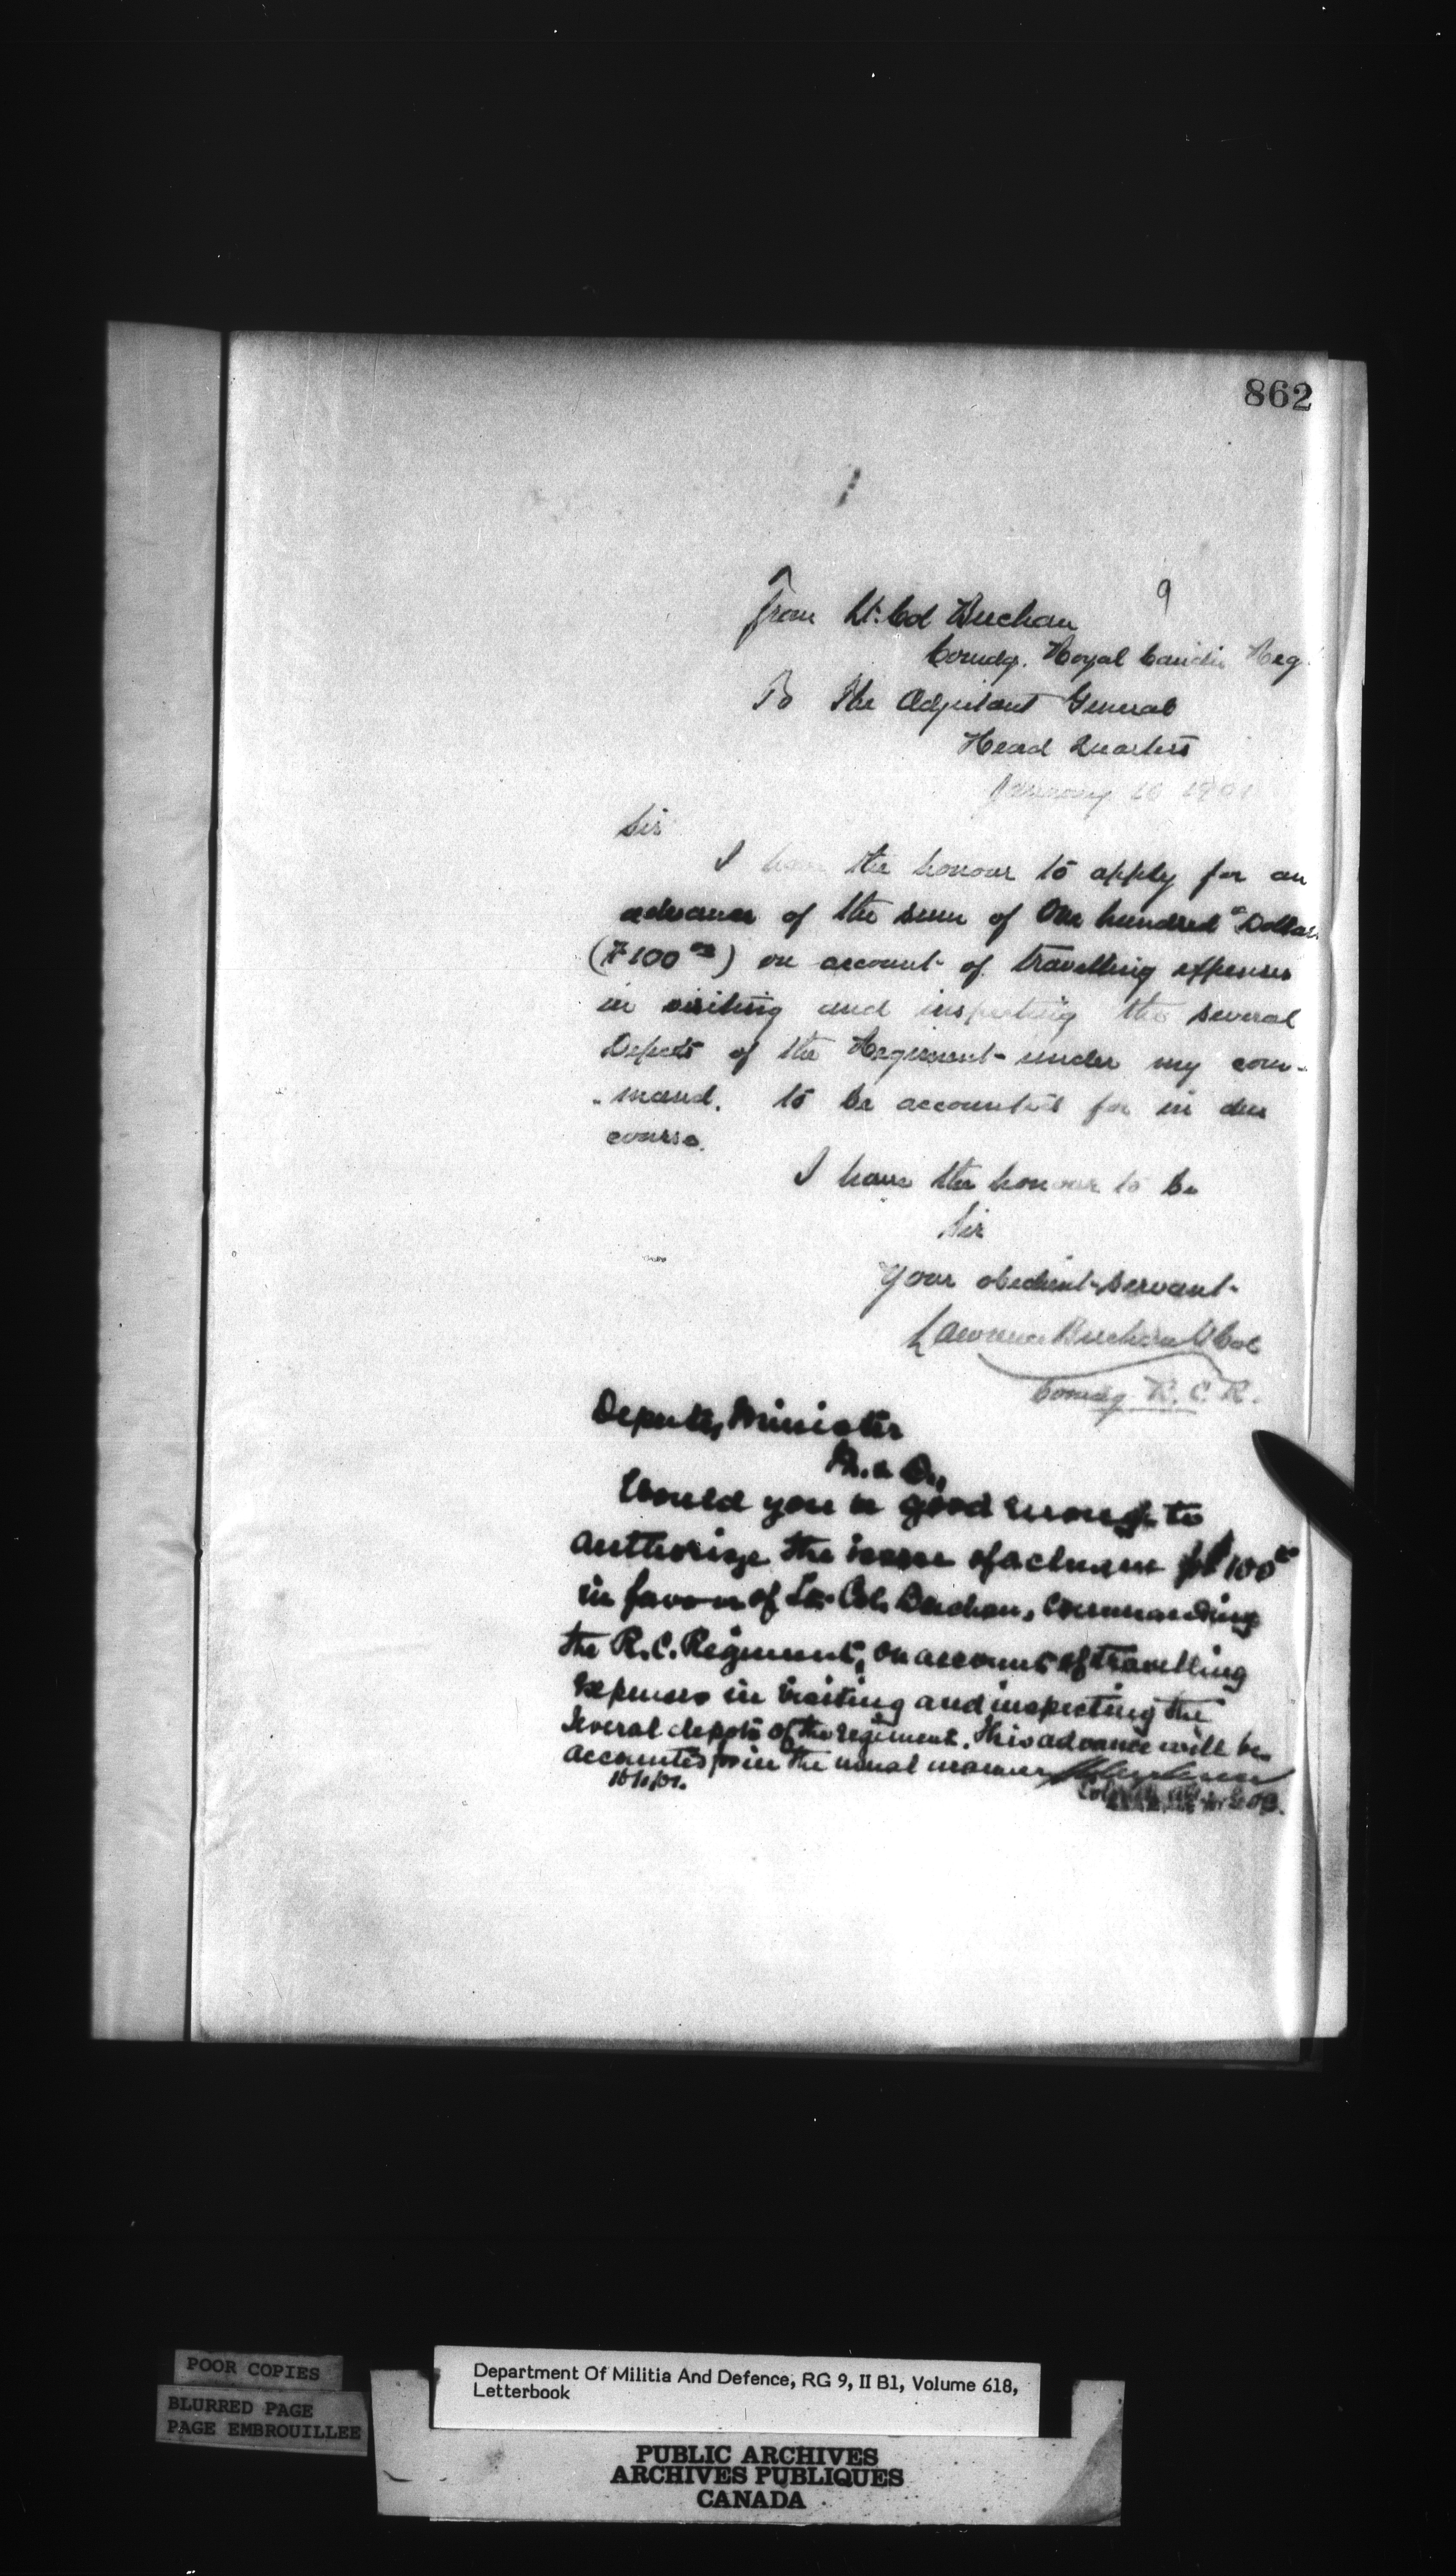 862
9
From Lt. Col Buchan
Comdg. Royal Candn Reg
To The Adjutant General
Head Quarters
January 10 1901
Sir
I have the honour to apply for an
advance of the sum of One hundred Dollars
($100 00) on account of travelling expenses
in visiting and inspecting the several
Depots of the Regiment under my com-
-mand. to be accounted for in due
course.
I have the honour to be
Sir
Your obedient servant
Lawrence Buchan Lt Col
Comdg R. C. R.
Deputy Minister
M. & D.,
Would you be good enough to
authorize the issue of a cheque $100
in favor of Lt. Col. Buchan, Commanding
the R.C. Regiment, on account of travelling
expenses in visiting and inspecting the
several depots of the regiment. This advance will be
accounted for in the usual manner
10/1/01.
POOR COPIES
BLURRED PAGE
PAGE EMBROUILLEE
Department Of Militia And Defence, RG 9, II B1, Volume 618,
Letterbook
PUBLIC ARCHIVES
ARCHIVES PUBLIQUES
CANADA